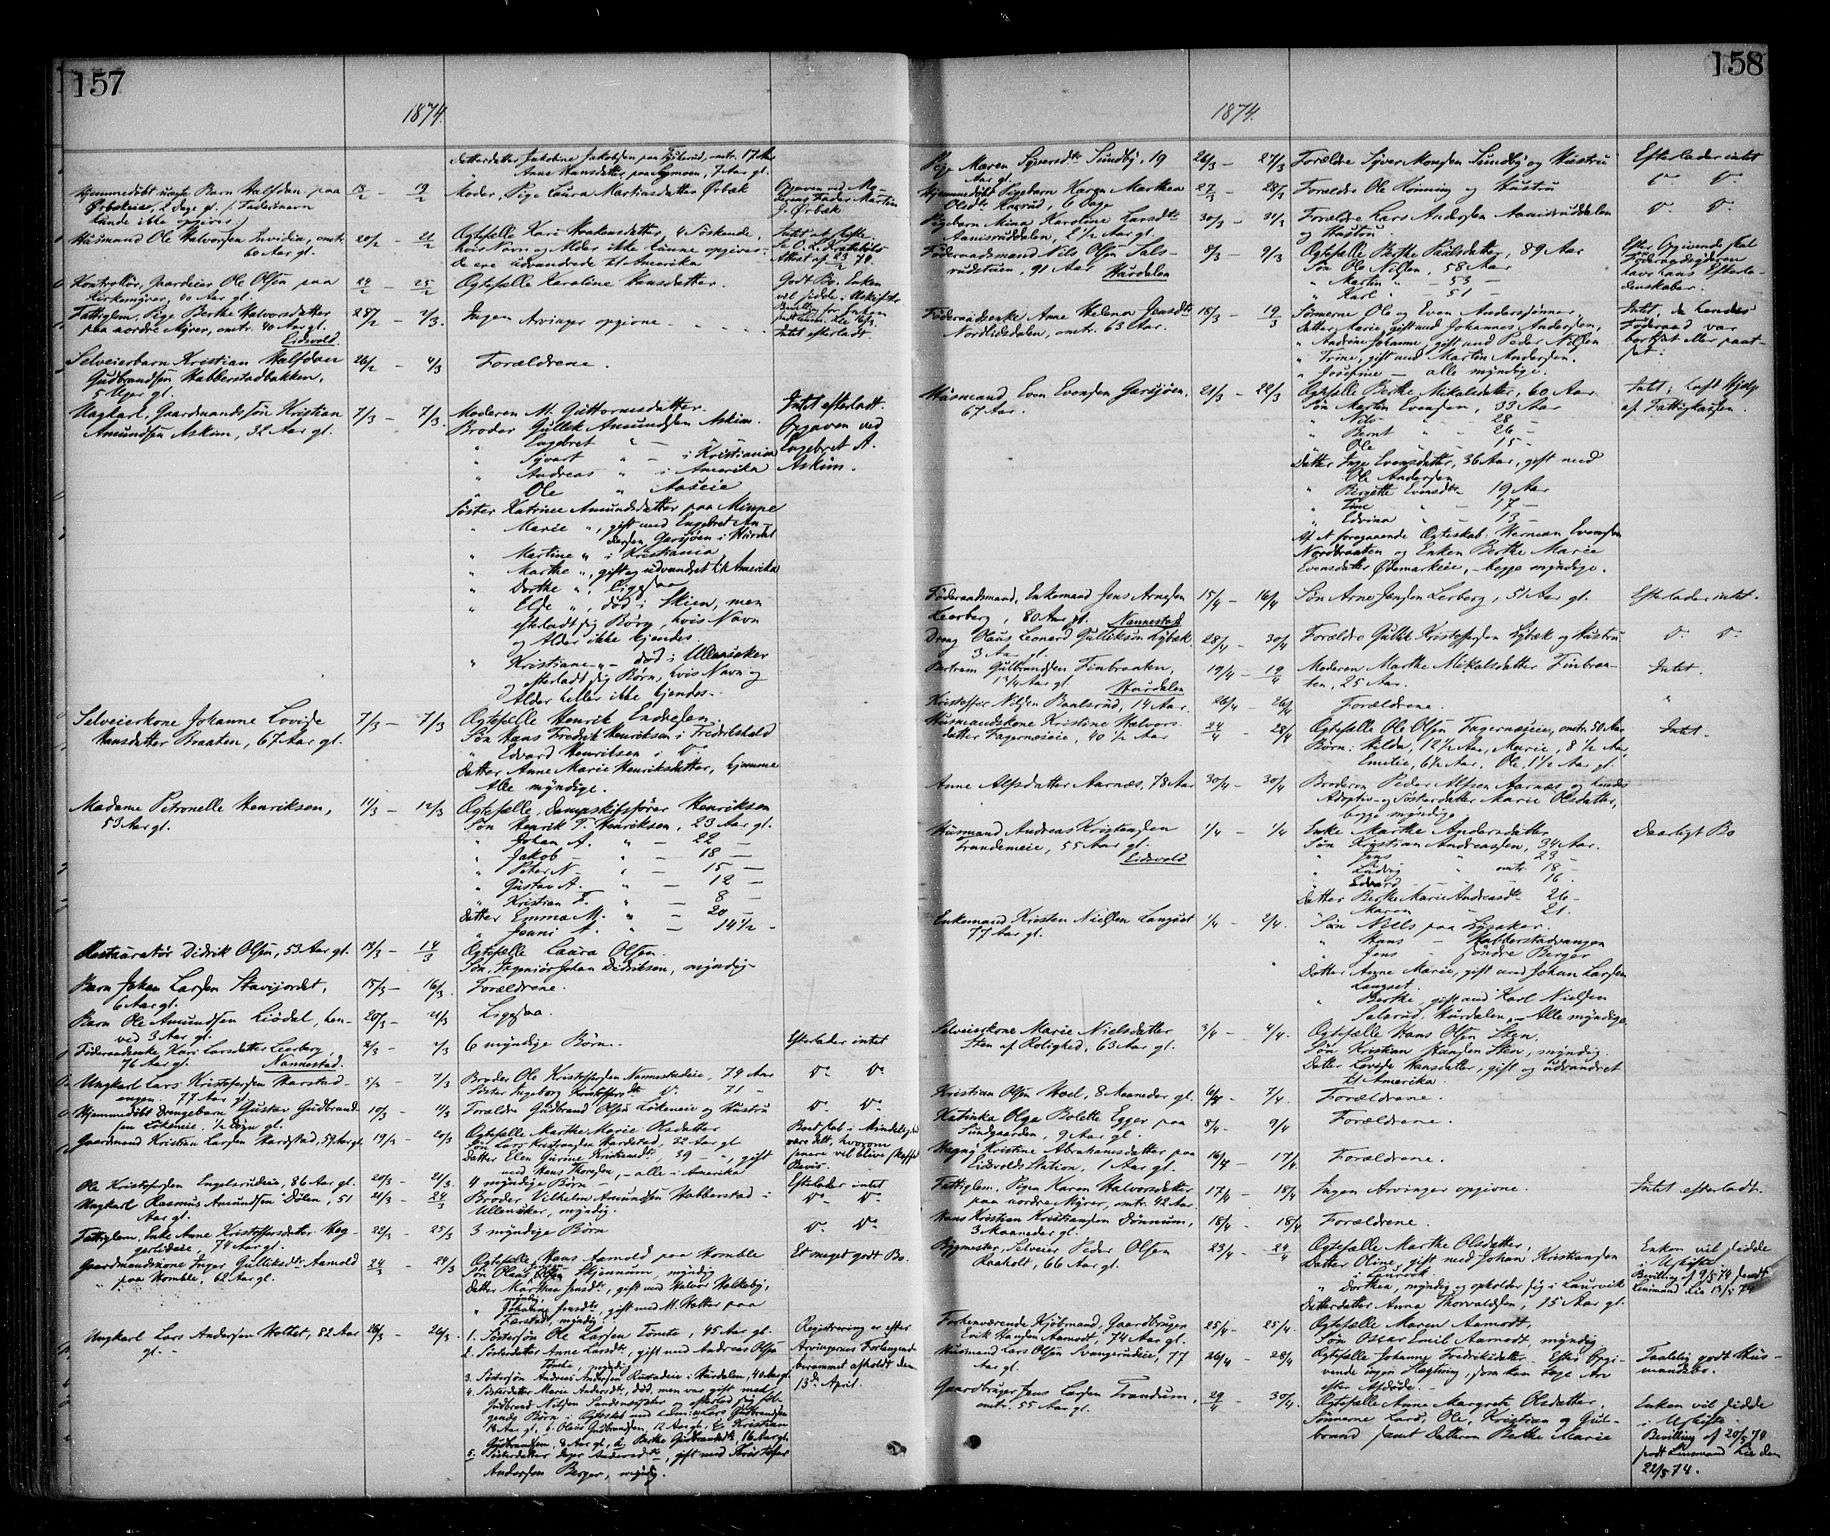 157
1874.
Datterdatter Jakobine Jakobsen paa omtr. 17 Aar
" Anne Hansdatter, paa 7 Aar gl.
Hjemmedøbt uægte Barn Halfdan, paa
Ørbækeie, 2 Dage gl. (Faderens Navn
kunde ikke opgives.)
13/2 — 19/2
Moder, Pige Laura Martinsdatter Ørbæk
Opgaven ved Mo-
derens Fader Martin
J. Ørbæk
Husmand Ole Halvorsen omtr.
60 Aar gl.
20/2 — 21/2
Ægtefælle Kari Haakensdatter, 4 Søskende,
hvis Navn og Alder ikke kunne opgives
de ere udvandrede til Amerika
Intet at skifte
Attest af 23/2 74.
Kontrollør, Gaardeier Ole Olsen paa
Kirkemyrer, 40 Aar gl.
24/2 — 25/2
Ægtefælle Karoline Hansdatter.
Godt Bo. Enken
vil sidde i Uskiftet
Fattiglem, Pige Berthe Halvorsdatter
paa nordre Myrer, omtr. 40 Aar gl.
Eidsvold.
28/2 — 2/3
Ingen Arvinger opgivne
Intet efterladt.
Selveierbarn Kristian Halfdan
Gudbrandsen Habberstadbakken,
5 Uger gl.
26/2 — 4/3
Forældrene.
Ungkarl, Gaardmandssøn Kristian
Amundsen Askim, 32 Aar gl.
7/3 — 7/3
Moderen M. Guttormsdatter.
Broder Gullek Amundsen Askim.
" Engebret " —
" Syvert " — i Kristiania
" Andreas " — i Amerika
" Ole " Aaseie
Søster Katrine Amundsdatter paa Minne
" Marie ", gift med Engebret An-
dersen Garsjøen i Hurdal
" Martine " i Kristiania
" Marthe ", gift og udvandret til Amerika
" Dorthe ", Ligesaa
" Else ", død i Skien, men
efterladt sig Børn, hvis Navn
og Alder ikke kjendes.
" Kristiane " — død i Ullensaker
efterladt sig Børn, hvis Navn og
Alder heller ikke kjendes.
Intet efterladt.
Opgaven ved
Engebret A.
Askim.
Selveierkone Johanne Lovise
Hansdatter Braaten, 67 Aar gl.
7/3 — 7/3
Ægtefælle Henrik Endresen.
Søn Hans Fredrik Henriksen i Fredrikshald
" Edvard Henriksen i D°
Datter Anne Marie Henriksdatter, hjemme
Alle myndige.
Madame Petronelle Henriksen,
53 Aar gl.
11/3 — 12/3
Ægtefælle, Dampskibsfører Henriksen
Søn Henrik T. Henriksen, 23 Aar gl.
" Johan A. " — 22 —
" Jakob — " — 18 —
" Peter N — " — 15 —
" Gustav A. " — 12 —
" Kristian E. " — 8 —
Datter Emma M. " — 20 —
" Jenni A. " — 14½ —
Restauratør Didrik Olsen, 53 Aar gl.
13/3 — 14/3
Ægtefælle Laura Olsen.
Søn, Ingeniør Johan Didriksen, myndig.
Barn Johan Larsen Stavijordet,
6 Aar gl.
15/3 — 16/3
Forældrene.
Barn Ole Amundsen Liødal, hen-
ved 3 Aar gl.
20/3 — 21/3
Ligesaa.
Føderaadsenke Kari Larsdatter Leerberg
76 Aar gl. Nannestad.
2/3 — 7/3
6 myndige Børn.
Efterlader intet
Ungkarl Lars Kristofersen Harstad-
engen. 77 Aar gl.
5/3 — 7/3
Broder Ole Kristofersen Nannestadeie, 74 Aar
Søster Ingeborg Kristoffersdtr D°. 71 —
D° D°
Hjemmedøbt Drengebarn Gustav Gudbrand-
sen Løkeneie. ½ Døgn gl.
10/3 — 11/3
Forældre Gudbrand Olsen Løkeneie og Hustru
D° D°
Gaardmand Kristian Larsen Hardstad, 59 Aar gl.
19/3 — 20/3
Ægtefælle Marthe Marie Olsdatter
Søn Lars Kristiansen Hardstad, 32 Aar gl
Datter Elen Gurine Kristiansdtr, 39 — ", gift
med Hans Thoresen, — alle i Amerika
Bodskab i Mindelighed
være delt, hvorom
senere vil blive skaffet
Bevis.
Ole Kristofersen Engelsrudeie, 86 Aar gl.
20/3 — 21/3
4 myndige Børn —
Efterlader intet
Ungkarl Rasmus Amundsen Dølen, 51
Aar gl.
21/3 — 24/3
Broder Vilhelm Amundsen Habberstad i
Ullensaker, myndig.
D° — D°
Fattiglem, Enke Anne Kristoffersdatter
74 Aar gl.
22/3 — 25/3
3 myndige Børn
D° D°
Gaardmandskone Inger Gulliksdtr Aamold
paa Homble, 62 Aar gl.
24/3 — 24/3
Ægtefælle, Hans Aamold paa Homble
Søn Olaus Olsen Skjennum, myndig
Datter Marthea Jensdtr, gift med Halvor Holkeby,
myndig.
" Johanne Jensdtr, gift med M. Holter paa
Farstad, myndig.
Et meget godt Bo.
Ungkarl Lars Andersen Holter, 82 Aar
gl. —
26/3 — 26/3
1. Søstersøn Ole Larsen Tømte, 45 Aar gl.
2. Søsterdatter Anne Larsdtr, gift med Andreas Olsen
Tømte, myndig
3. Søstersøn Andreas Andersen Rustadeie i Hurdalen, 40 Aar gl.
4. Søsterdatter Marie Andersdtr, død, men var gift med
Gudbrand Nilsen Sandsnesseter og efterlod sig føl-
gende Børn i Ægteskab med hende: a Lars Gudbrandsen
18 Aar gl, b. Olaus Gudbrandsen, 12 Aar gl, c. Kristian
Gudbrandsen, 8 Aar gl, d. Berthe Gudbrandsdtr, 16 Aar gl.
5. Søsterdatter Inger Andersdtr, gift med Kristofer
Andersen Berger, myndig.
Registrering er efter
Arvingernes Forlangende
berammet afholdt den
13de April.
158
1874.
Pige Maren Syversdtr Sundby, 19
Aar gl.
26/3 — 27/3
Forældre Syver Monsen Sundby og Hustru
Efterlader intet
Hjemmedøbt Pigebarn Karen Marthea
Olsdtr Hasrud, 6 Dage
27/3 — 28/3
Forældre Ole Rønning og Hustru
D° D°
Pigebarn Mina Karoline Larsdtr
Aamisruddalen, 2½ Aar gl.
30/3 — 31/3
Forældre Lars Andersen Aamisruddalen
og Hustru
D° D°
Føderaadsmand Nils Olsen Sals-
rudstuen, 91 Aar
Hurdalen
8/3 — 9/3
Ægtefælle Berthe Paulsdatter, 89 Aar
Søn Ole Nilsen, 58 Aar
" Martin " — 53 —
" Karl " — 51
Efter Opgivende skal
Føderaadsgiveren
have hans Efterla-
denskaber.
Føderaadsenke Anne Helena Jensdtr
Nordlidsdalen, omtr. 63 Aar.
18/3 — 19/3
Sønnerne Ole og Even Anderssønner,
Datter Marie, gift med Johannes Andersen,
" Andrine Johanne, gift med Peder Nilsen
" Trine, gift med Martin Andersen.
" Josefine — alle myndige.
Intet, da hendes
Føderaad var
bortsat eller paat-
sat.
Husmand, Even Evensen Garsjøen,
67 Aar.
21/3 — 22/3
Ægtefælle Berthe Mikalsdatter, 60 Aar
Søn Martin Evensen, 33 Aar
" Nils " 28 —
" Bernt " 26 —
" Ole " 15 —
Datter Inge Evensdatter, 36 Aar, gift med
Ole Andersen
" Bergitte Evensdtr 19 Aar
" Tine " — 17 —
" Edvina " — 13 —
Af et foregaaende Ægteskab: Herman Evensen
Nordbraaten og Enken Berthe Marie
Evensdatter Ødemarkeie, — begge myndige.
Intet; haft Hjælp
af Fattigkassen.
Føderaadsmand, Enkemand Jens Arnesen
Leerberg, 80 Aar gl. Nannestad
15/4 — 16/4
Søn Arne Jensen Lerberg, 51 Aar gl.
Efterlader intet.
Dreng Olaus Leonard Gulliksen Lybæk.
3 Aar gl.
28/4 — 30/4
Forældre Gullik Kristoffersen Lybæk og Hustru
D° D°
Bertram Gulbrandsen Finbraaten,
1¾ Aar gl.
Hurdalen
19/4 — 19/4
Moderen Marthe Mikalsdatter Finbraa-
ten, 25 Aar.
Intet.
Kristoffer Nilsen Baalsrud, 14 Aar.
26/4 — 26/4
Forældrene.
"
Husmandskone Kristine Halvors-
datter Fagernæseie, 40½ Aar
24/4 — 28/4
Ægtefælle Ole Olsen Fagernæseie, omtr. 50 Aar
Børn: Hilda, 12½ Aar, Marie, 8½ Aar,
Emilie, 6½ Aar, Ole, 1½ Aar gl.
Intet.
Anne Alfsdatter Aarnæs, 78 Aar
30/4 — 30/4
Broderen Peder Alfsen Aarnæs og hendes
Adoptiv- og Søsterdatter Marie Olsdatter,
begge myndige
Husmand Andreas Kristensen
55 Aar gl.
Eidsvold
1/4 — 1/4
Enke Marthe Andersdatter
Søn Kristian Andreassen, 34 Aar.
" Jens " 23 —
" Ludvig " omtr. 18 —
" Edvard — — 16 .
Datter Berthe Marie Andreasdtr 26 —
" Maren " 21.
Daarligt Bo
Enkemand Kristen Nielsen Langset
77 Aar gl.
1/4 — 2/4
Søn Niels paa Lysaker.
" Hans — Habberstadvangen
" Jens — søndre Berger
Datter Anne Marie, gift med Johan Larsen
Langset.
" Berthe, gift med Karl Nielsen
Salsrud, Hurdalen, — Alle myndige
Selveierkone Marie Nielsdatter
Sten af Rolighed, 63 Aar gl.
3/4 — 4/4
Ægtefælle Hans Olsen Sten,
Søn Kristian Hansen Sten, myndig.
Datter Lovise Hansdatter, gift og udvandret
til Amerika.
Kristian Olsen Hoel, 8 Maaneder gl.
6/4 — 7/4
Forældrene.
Katinka Olga Bolette Egger paa
Sundgaarden, 9 Aar gl.
8/4 — 9/4
Forældrene.
Magny Kristine Abrahamsdatter paa
Eidsvolds Station, 1 Aar gl.
16/4 — 17/4
Forældrene.
Fattiglem, Pigen Karen Halvorsdatter
paa nordre Myrer, omtr. 42 Aar.
17/4 — 18/4
Ingen Arvinger opgivne.
Intet efterladt.
Hans Kristian Kristiansen Dønnum,
3 Maaneder gl.
18/4 — 18/4
Forældrene.
Bygmester, Selveier Peder Olsen
Raaholt, 66 Aar gl.
23/4 — 24/4
Ægtefælle Marthe Olsdatter,
Datter Oline, gift med Johan Kristiansen
i Laurvik
" Dorthea, myndig og opholder sig i Laurvik
Datterdatter Anna Thorvaldsen, 15 Aar gl.
Enken vil sidde
i Uskifte
Bevilling af 9/5 74 sendt
Lensmand Lie 13/5 74
Forhenværende Kjøbmand, Gaardbruger
Erik Hansen Aamodt, 74 Aar gl.
25/4 — 25/4
Ægtefælle Maren Aamodt,
Søn Oscar Emil Aamodt, myndig
Husmand Lars Olsen Svangerudeie, 77
Aar gl.
26/4 — 28/4
Ægtefælle Johanne Fredriksdatter. Efter Opgi-
vende ingen Slægtning, som kan tage Arv
efter Afdøde.
Taalelig godt Hus-
mandsbo.
Gaardbruger Jens Larsen Trandum,
omtr. 55 Aar gl.
29/4 — 30/4
Ægtefælle Anne Margrete Olsdatter.
Sønnerne Lars, Ole, Kristian og Gul-
brand samt Datteren Berthe Marie
Enken vil sidde
i Uskifte.
Bevilling af 20/5 74
sendt Lensmand Lie den
22/5 74.